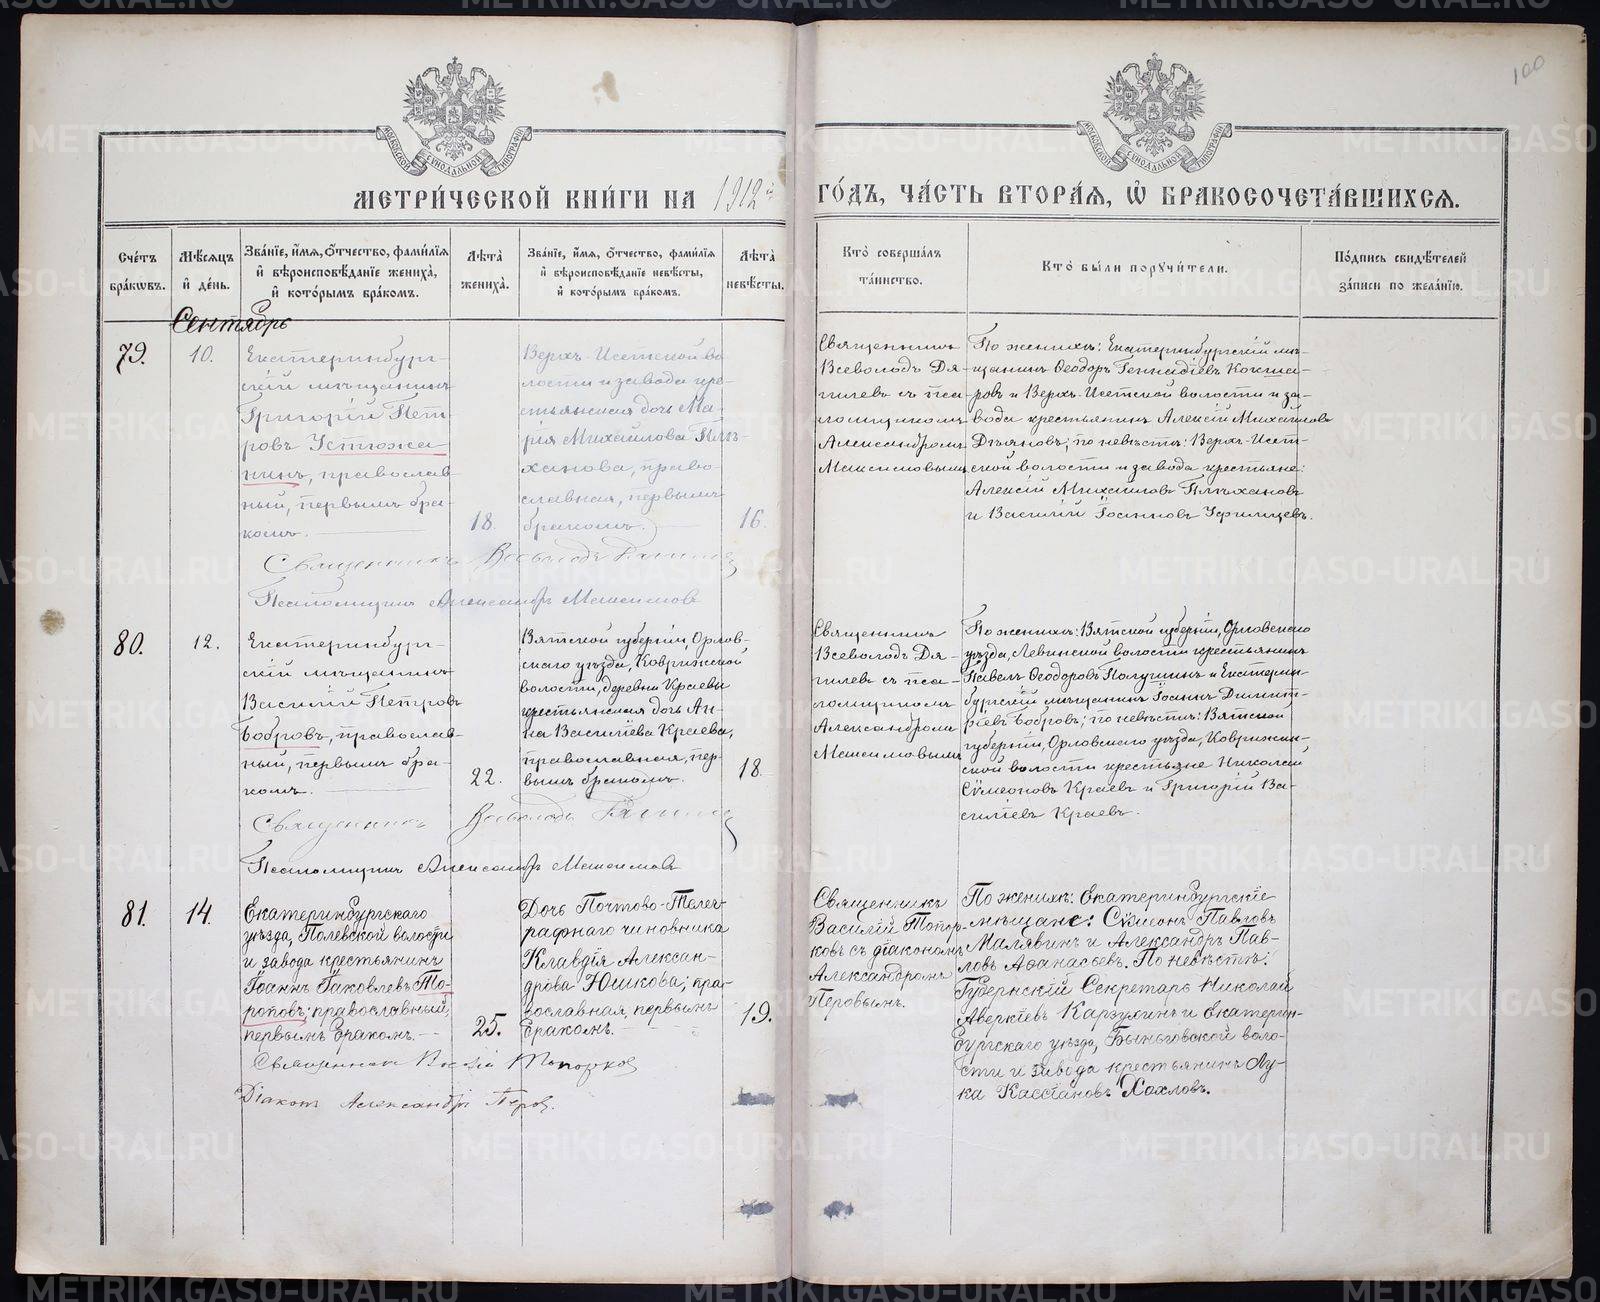 100
МОСКОВСКОЙ СѴНОДАЛЬНОЙ ТИПОГРАФІИ
МОСКОВСКОЙ СѴНОДАЛЬНОЙ ТИПОГРАФІИ
МЕТРИ́ЧЕСКОЙ КНИ́ГИ НА 1912й ГО́ДЪ, ЧА́СТЬ ВТОРА́Я, Ѽ БРАКОСОЧЕТА́ВШИХСЯ.
Сче́тъ
бра́кѡвъ.
Мѣ́сяцъ
и҆ де́нь.
Зва́нїе, и҆́мя, ѻ҆́тчество, фами́лїя
и҆ вѣроисповѣ́данїе жениха̀,
и҆ кото́рымъ бра́комъ.
Лѣ́та
жениха̀.
Зва́нїе, и҆́мя, ѻ҆́тчество, фами́лїя
и҆ вѣроисповѣ́данїе невѣ́сты,
и҆ кото́рымъ бра́комъ.
Лѣ́та
невѣ́сты.
Кто̀ соверша́лъ
та́инство.
Кто̀ бы́ли порꙋчи́тели.
По́дпись свидѣ́телей
за́писи по жела́нїю.
Сентябрь
79.
10.
Екатеринбург-
скій мѣщанинъ
Григорій Пет-
ровъ Устюжа
нинъ, православ
ный, первымъ бра-
комъ.
18.
Верхъ-Исетской во
лости и завода кре-
стьянская дочь Ма-
рія Михаилова Плѣ-
ханова, право-
славная, первымъ
бракомъ.
16.
Священникъ
Всеволодъ Дя-
гилевъ съ пса-
ломщикомъ
Александромъ
Максимовымъ
По женихѣ: Екатеринбургскій мѣ-
щанинъ Ѳеодоръ Геннадіевъ Кокша-
ровъ и Верхъ-Исетской волости и за-
вода крестьянинъ Алексій Михаиловъ
Дѣяновъ; по невѣстѣ: Верхъ-Исет-
ской волости и завода крестьяне:
Алексій Михаиловъ Плѣхановъ
и Василій Іоанновъ Уфимцевъ.
Священникъ Всеволодъ Дягилевъ
Псаломщикъ Александръ Максимовъ
80.
12.
Екатеринбург-
скій мѣщанинъ
Василій Петровъ
Бобровъ, православ-
ный, первымъ бра-
комъ.
22.
Вятской губерніи, Орлов-
скаго уѣзда, Коврижской
волости, деревни Краевы
крестьянская дочь Ан-
на Васильева Краева,
православная, пер-
вымъ бракомъ.
18.
Священникъ
Всеволодъ Дя-
гилевъ съ пса-
ломщикомъ
Александромъ
Максимовымъ
По женихѣ: Вятской губерніи, Орловскаго
уѣзда, Левинской волости крестьянинъ
Павелъ Ѳеодоровъ Полушинъ и Екатерин-
бургскій мѣщанинъ Іоаннъ Димит-
ріевъ Бобровъ; по невѣстѣ: Вятской
губерніи, Орловскаго уѣзда, Коврижи-
ской волости крестьяне Николай
Сѵмеоновъ Краевъ и Григорій Ва-
сильевъ Краевъ.
Священникъ Всеволодъ Дягилевъ
Псаломщикъ Александръ Максимовъ
81.
14.
Екатеринбургскаго
уѣзда, Полевской волости
и завода крестьянинъ
Іоаннъ Іаковлевъ То-
роповъ; православный,
первымъ бракомъ.
25.
Дочь Почтово-Телег-
рафнаго чиновника
Клавдія Алексан-
дрова Юшкова; пра-
вославная, первымъ
бракомъ.
19.
Священникъ
Василій Топор-
ковъ съ діакономъ
Александромъ
Перовымъ.
По женихѣ: Екатеринбургскіе
мѣщане: Сѵмеонъ Павловъ
Малявинъ и Александръ Пав-
ловъ Аѳанасьевъ. По невѣстѣ:
Губернскій Секретарь Николай
Аверкіевъ Карзухинъ и Екатерин-
бургскаго уѣзда, Быньговской воло-
сти и завода крестьянинъ Лу-
ка Кассіановъ Хохловъ.
Священникъ Василій Топорковъ
Діаконъ Александръ Перовъ.